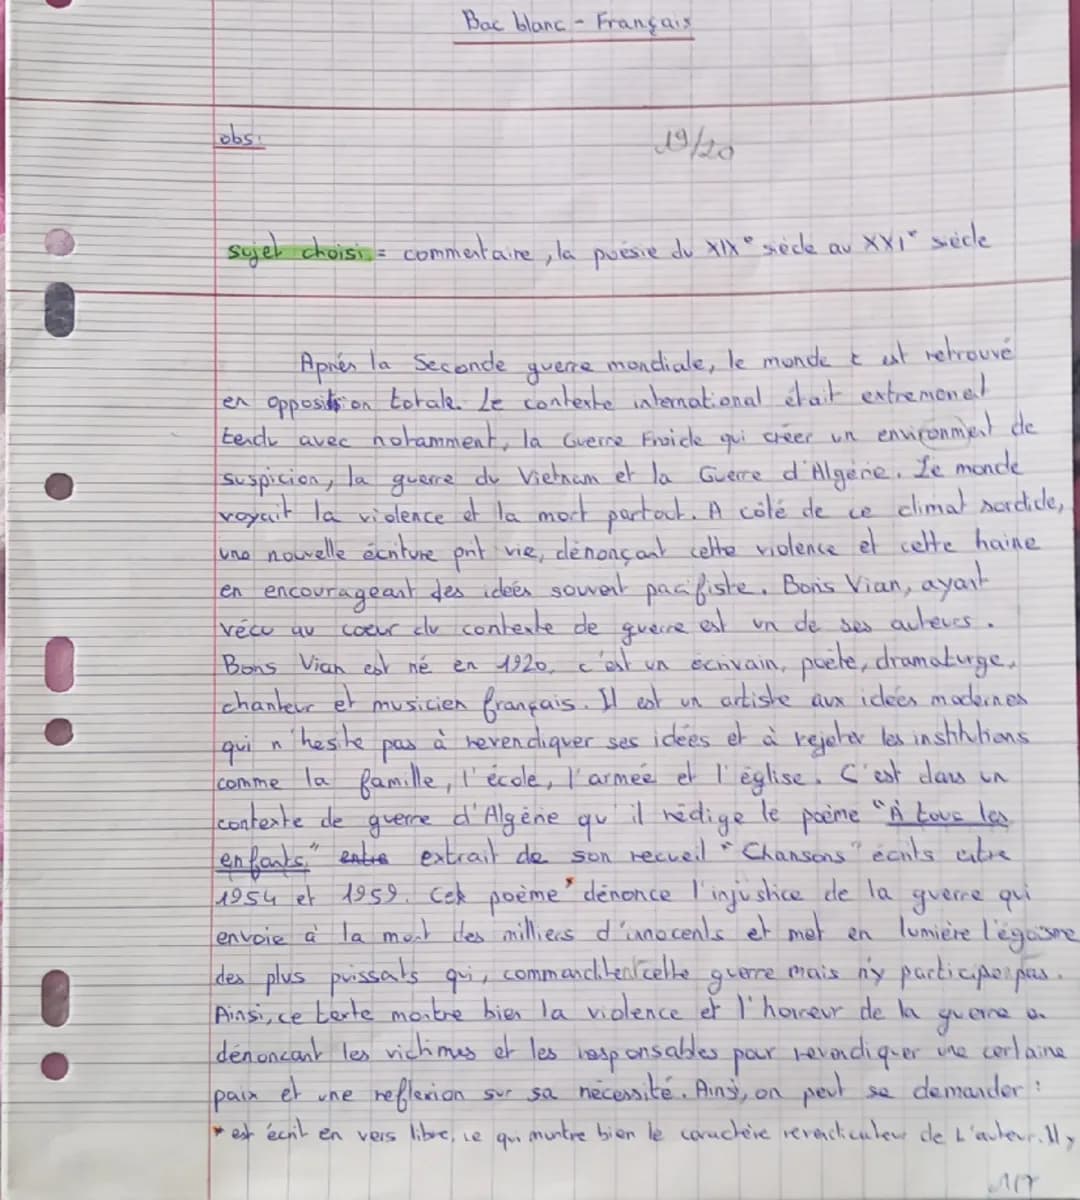 Bac blanc - Français
obs:
19/20
sujet choisi = commentaire, la poésie du XIXe siècle au XXIe siècle
Après la Seconde guerre mondiale, le monde est retrouvé
en opposition totale. Le contexte international était extremement
tendu avec notamment, la Guerre Froide qui créer un environment de
suspicion, la guerre du Vietnam et la Guerre d'Algérie. Le monde
voyait la violence et la mort partout. A côté de ce climat sordide,
une nouvelle écriture prit vie, dénonçant cette violence et cette haine
en encourageant des idées souvent pacifiste. Boris Vian, ayant
vécu au coeur du contexte de guerre est un de ses auteurs.
Boris Vian est né en 1920, c'est un écrivain, poète, dramaturge,
chanteur et musicien français. Il est un artiste aux idées modernes
qui n'hesite pas à revendiquer ses idées et à rejeter les institutions
comme la famille, l'école, l'armée et l'église. C'est dans un
contexte de guerre d'Algérie qu'il rédige le poème "À tous les
enfants" entre extrait de son recueil "Chansons" écrits entre
1954 et 1959. Cet poème* dénonce l'injustice de la guerre qui
envoie à la mort des milliers d'innocents et met en lumière l'égoïsme
des plus puissants qui, commanditent cette guerre mais n'y participe pas.
Ainsi, ce texte montre bien la violence et l'horreur de la guerre en
dénoncant les victimes et les responsables pour revendiquer une certaine
paix et une reflexion sur sa nécessité. Ainsi, on peut se demander :
* est écrit en vers libre, ce qui montre bien le caractère revendicateur de l'auteur. Il y
1/7